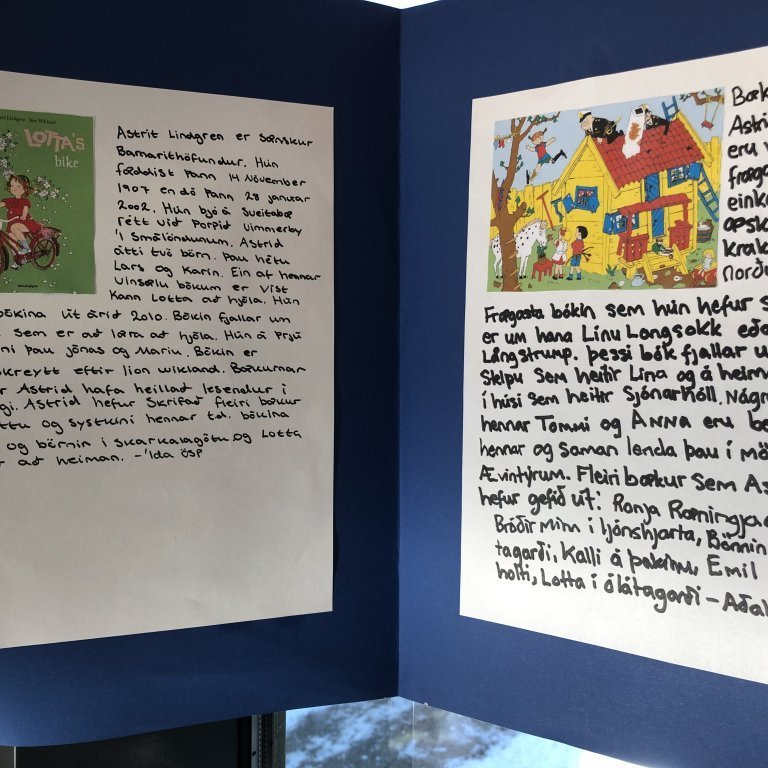 Lindgren
LOTTA'S
bike
Astrit Lindgren er sænskur
Barnarithöfundur. Hún
fæddist Þann 14 Nóvember
1907 en dó Þann 28 janúar
2002. Hún bjó á Sveitabæ
rétt við Þorpið Vimmerby
í Smálöndunum. Astrid
átti tvö börn. Þau hétu
Lars og Karin. Ein af hennar
Vinsælu bókum er Víst
Kann Lotta að hjóla. Hún
bókina út árið 2010. Bókin fjallar um
sem er að læra að hjóla. Hún á Þrjú
ni Þau jónas og Mariu. Bókin er
skreytt eftir lion wikland. Bækurnar
r Astrid hafa heillað lesendur í
gi. Astrid hefur Skrifað fleiri bækur
ttu og systkini hennar td. bókina
og börnin í skarkalagötu og Lotta
r að heiman. - Ída ösp
Bæk
Astri
eru v
fræga
einka
æsk
krak
norð
Frægasta bókin sem hún hefur s
er um hana Línu Langsokk eða
Långstrump. Þessi bók fjallar u
Stelpu Sem heitir Lína og á heim
í húsi sem heitir Sjónarhóll. Nágr
hennar Tommi og ANNA eru be
hennar og saman lenda þau í mö
Ævintýrum. Fleiri bækur sem As
hefur gefið út: Ronja Ræningja
Bróðir minn í ljónshjarta, Börnin
tagarði, Kalli á þakinu, Emil
holti, Lotta í Ólátagarði - Aðal